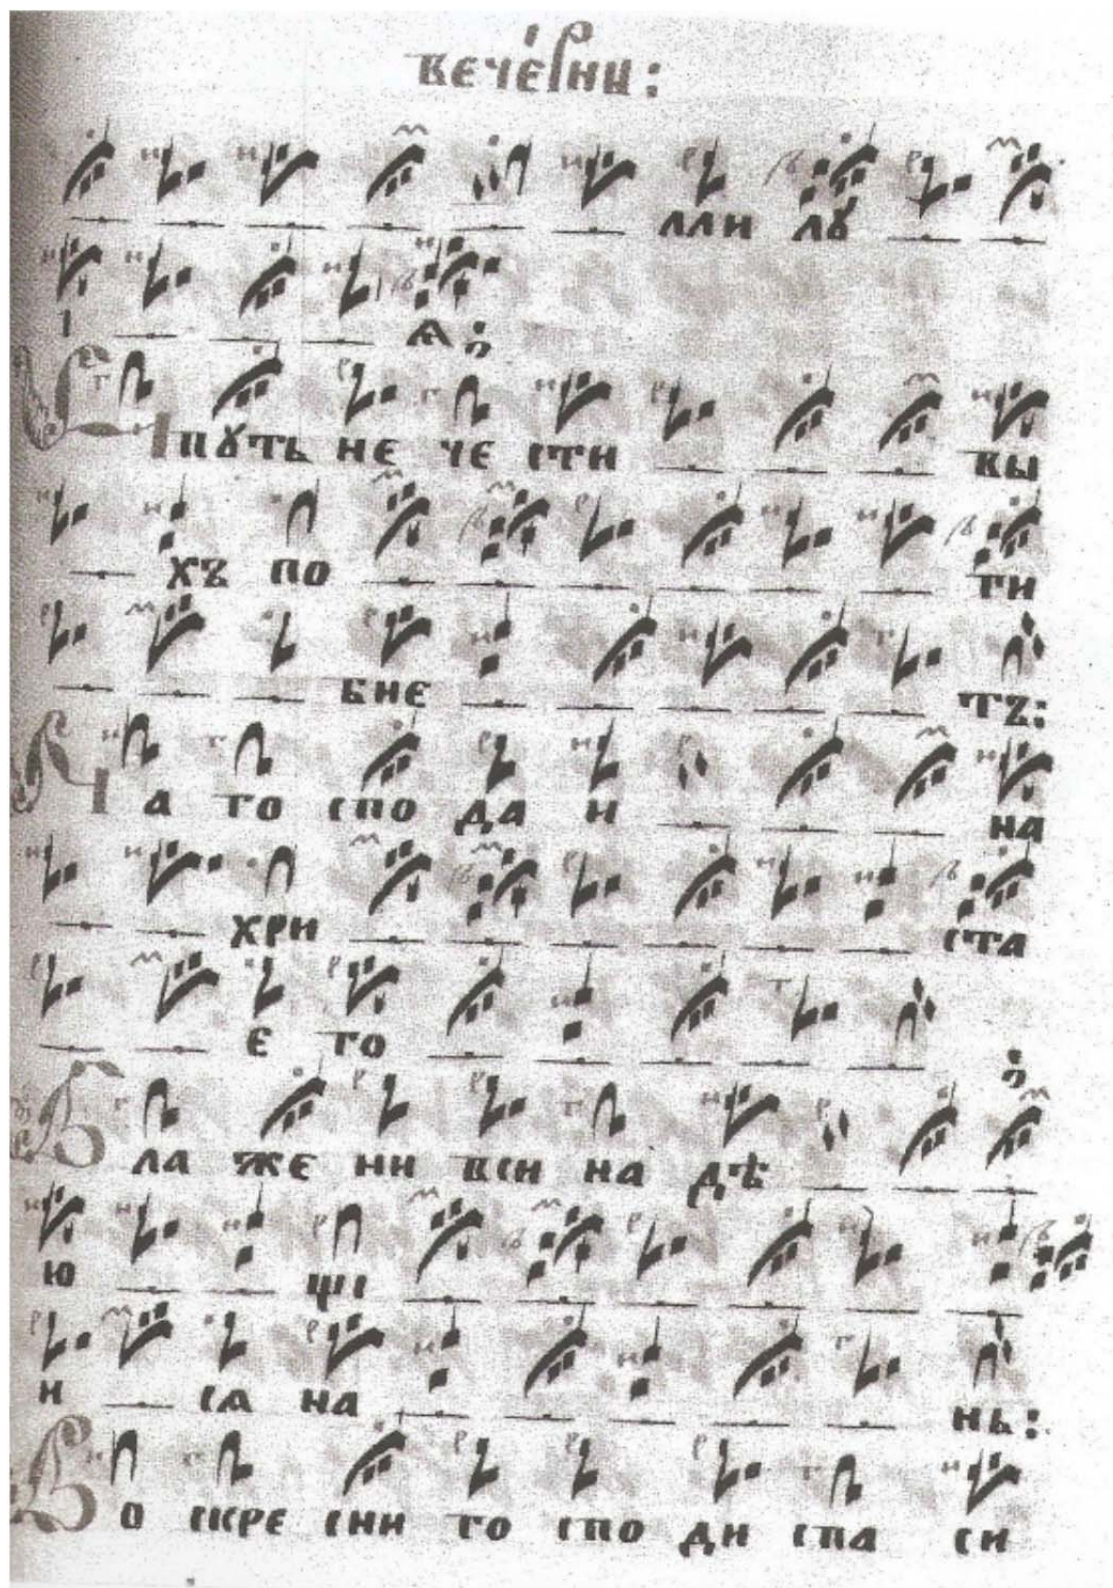 вече́рни:
лли лꙋ
і ѧ:
И пꙋть не че сти вы
хъ по ги
бне тъ:
На го спо да и на
хри ста
е го :
Бла же ни вси на дѣ
ю щі
и сѧ на нь:
Во скре сни го спо ди спа си